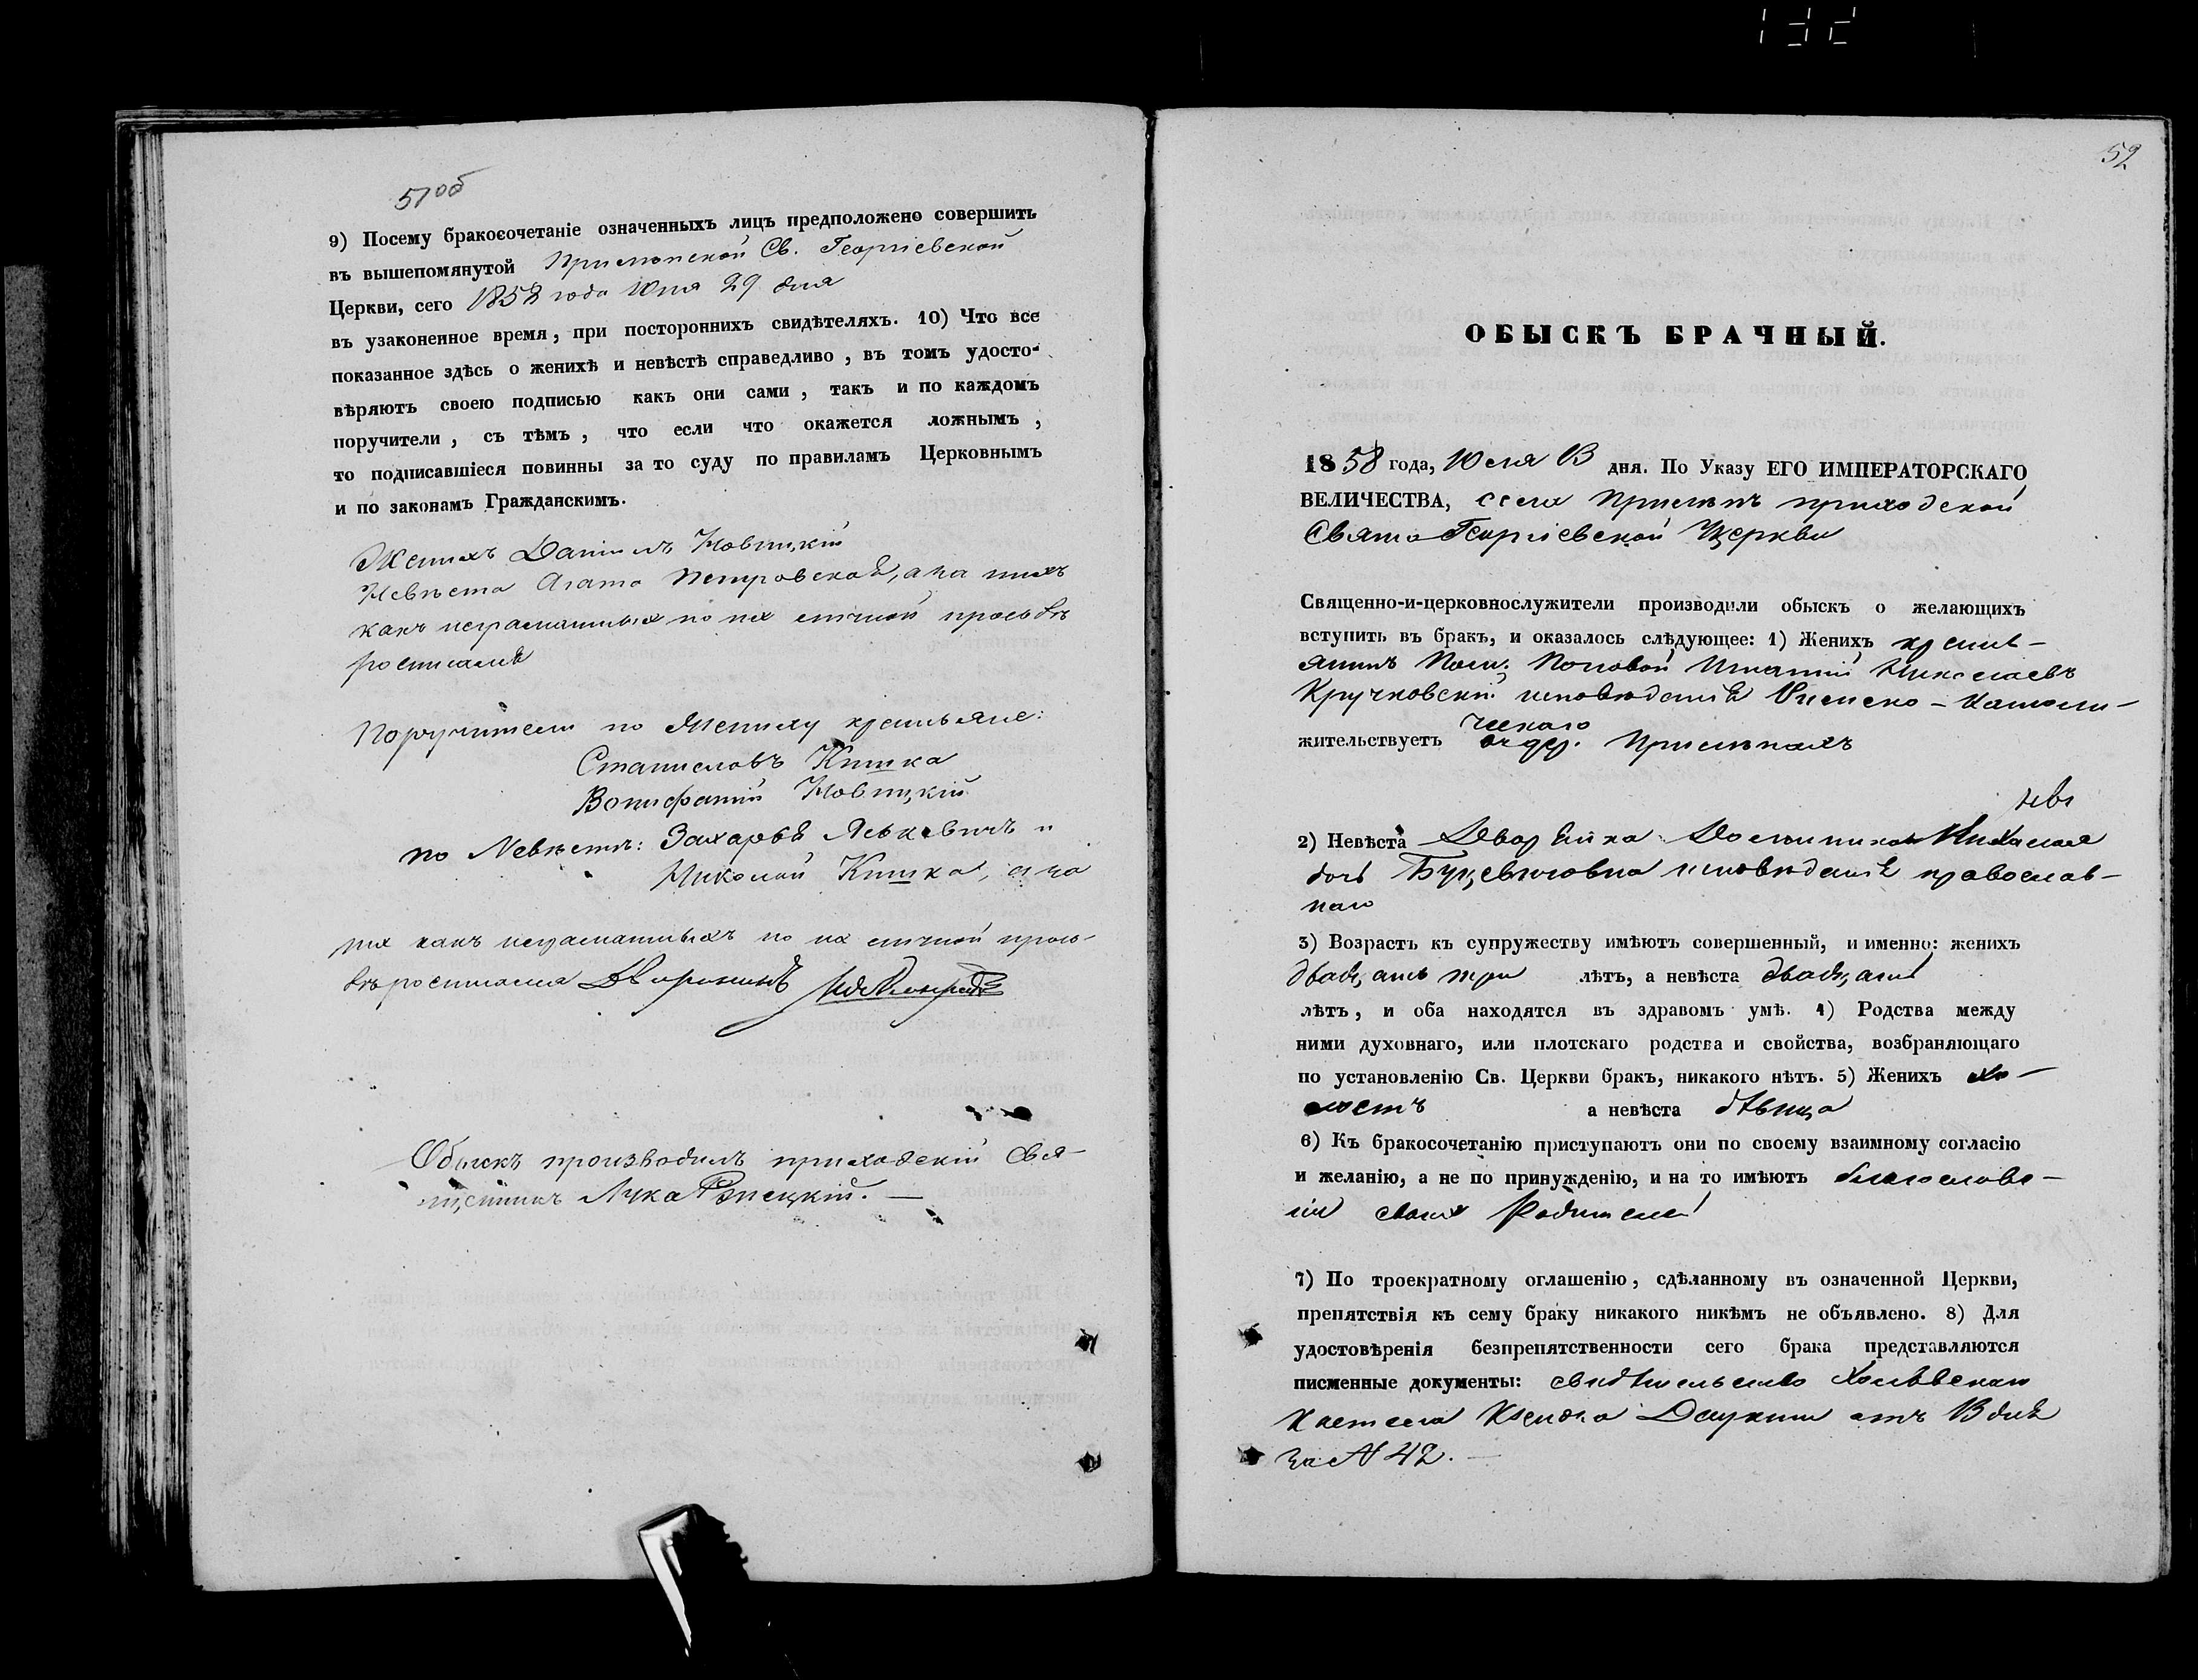 51 об
9) Посему бракосочетаніе означенныхъ лицъ предположено совершить
въ вышепомянутой Св. Георгіевской
Церкви, сего 1858 года Юля 29 дня
въ узаконенное время, при постороннихъ свидѣтеляхъ. 10) Что все
показанное здѣсь о женихѣ и невѣстѣ справедливо, въ томъ удосто-
вѣряютъ своею подписью какъ они сами, такъ и по каждомъ
поручители, съ тѣмъ, что если что окажется ложнымъ,
то подписавшіеся повинны за то суду по правиламъ Церковнымъ
и по законамъ Гражданскимъ.
Женихъ Даніилъ Новицкій
Невѣста Агата Петровская, а на нихъ
какъ неграматныхъ по их личной прозьбѣ
росписался
Поручители по Жениху крестьяне:
Станиславъ Кишка
Вонифатій Новицкій
по Невѣстѣ: Захарій Яськевичъ и
Николай Кишка, а на
них какъ неграматныхъ по их личной прозь-
бѣ росписался Дворянинъ
Обыскъ производилъ приходскій Свя-
щенникъ Лука Рэпецкій.
52
ОБЫСКЪ БРАЧНЫЙ.
1858 года, Юля 13 дня. По Указу ЕГО ИМПЕРАТОРСКАГО
ВЕЛИЧЕСТВА, села приходской
Свято Георгіевской Церкви
Священно-и-церковнослужители производили обыскъ о желающихъ
вступить въ бракъ, и оказалось слѣдующее: 1) Женихъ кресть-
янинъ Игнатій Николаевъ
Кручковскій исповѣданія Римско-Католи-
ческаго
жительствуетъ въ дер.
2) Невѣста Дворянка
дочь Буцевичовна исповѣданія православ-
наго
3) Возрастъ къ супружеству имѣютъ совершенный, и именно: женихъ
двадцать три лѣтъ, а невѣста двадцать
лѣтъ, и оба находятся въ здравомъ умѣ. 4) Родства между
ними духовнаго, или плотскаго родства и свойства, возбраняющаго
по установленію Св. Церкви бракъ, никакого нѣтъ. 5) Женихъ хо-
лостъ а невѣста дѣвица
6) Къ бракосочетанію приступаютъ они по своему взаимному согласію
и желанію, а не по принужденію, и на то имѣютъ благослове-
ніи своих Родителей
7) По троекратному оглашенію, сдѣланному въ означенной Церкви,
препятствія къ сему браку никакого никѣмъ не объявлено. 8) Для
удостовѣренія безпрепятственности сего брака представляются
писменные документы: свидѣтельство
Ксендза отъ 13 дня
за № 42.